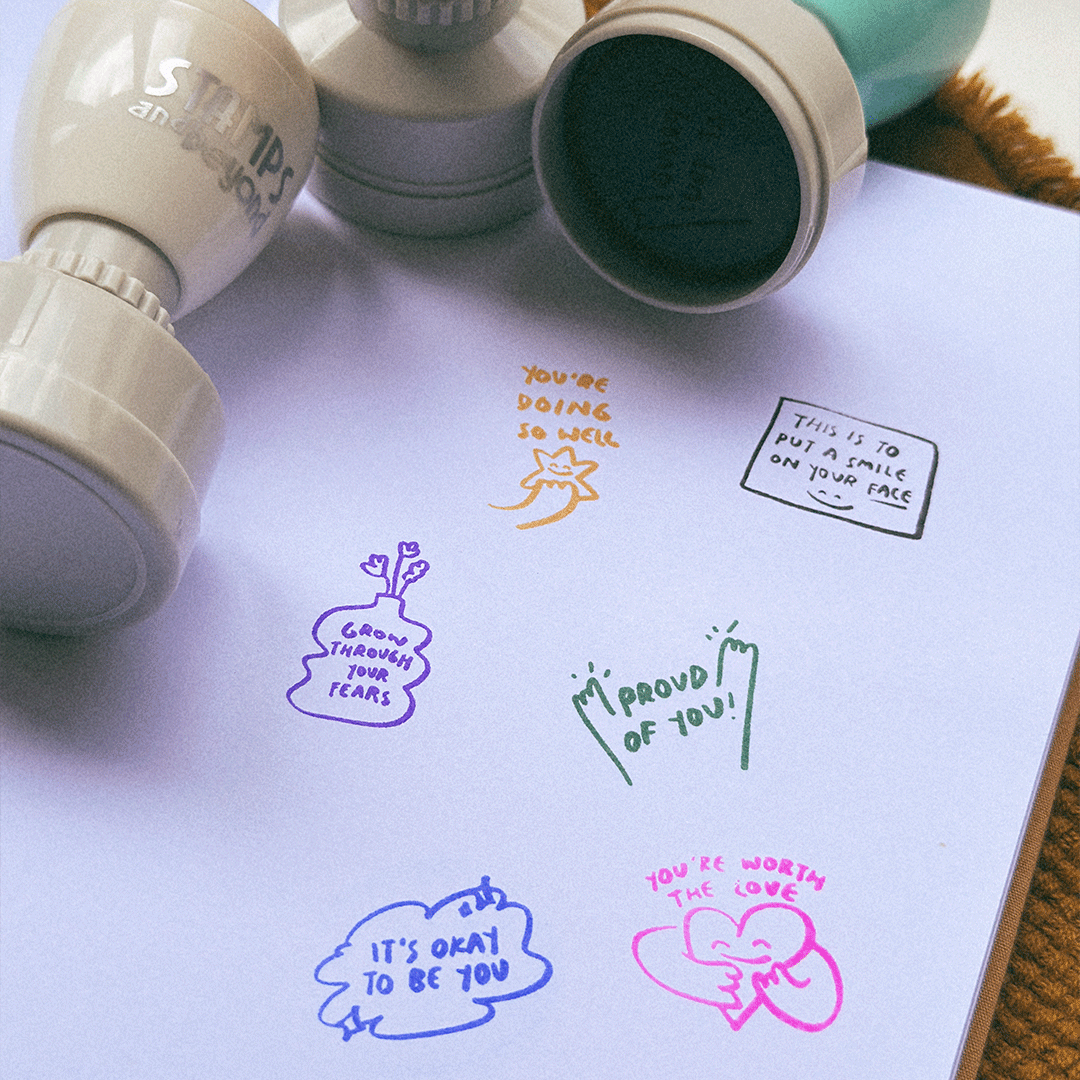 STAMPS
and beyond
YOU'RE
DOING
SO WELL
THIS IS TO
PUT A SMILE
ON YOUR FACE
GROW
THROUGH
YOUR
FEARS
PROUD
OF YOU!
YOU'RE WORTH
THE LOVE
IT'S OKAY
TO BE YOU